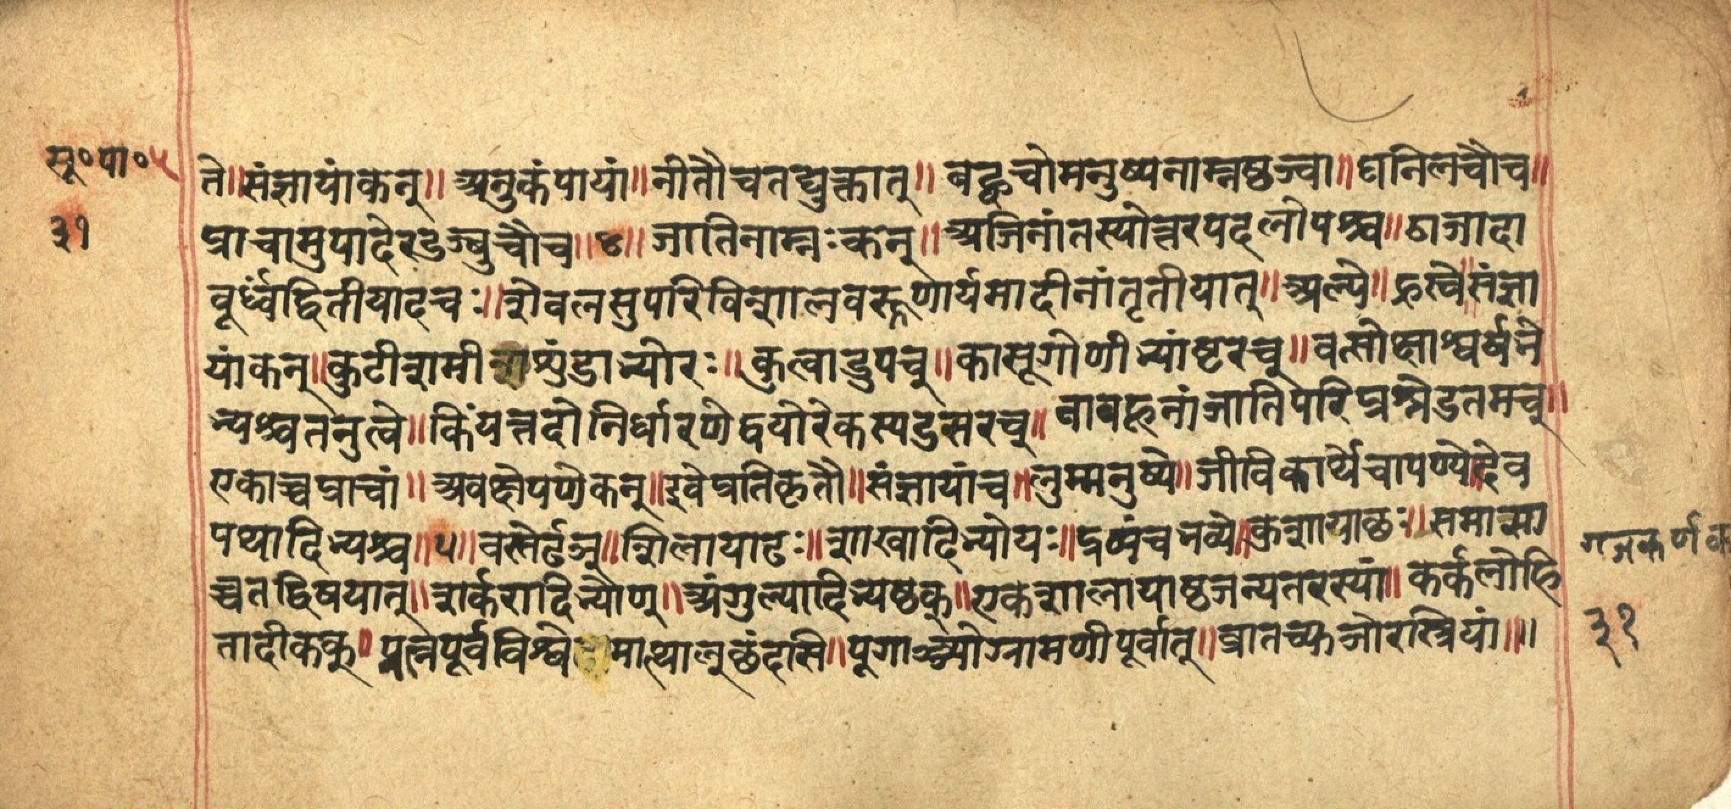 सू॰पा॰५
३१
ते॥संज्ञायांकन्॥अनुकंपायां॥नीतौचतद्युक्तात्॥बह्वचोमनुष्यनाम्नष्ठज्वा॥घनिलचौच॥
प्राचामुपादेरडज्वुचौच॥४॥जातिनाम्नःकन्॥अजिनांतस्योत्तरपदलोपश्च॥ठाजादा
वूर्ध्वंद्वितीयादचः॥शेवलसुपरिविशालवरुणार्यमादीनांतृतीयात्॥अल्पे॥ह्रस्वे॥संज्ञा
यांकन्॥कुटीशमीशुंडाभ्योरः॥कुत्वाडुपच्॥कासूगोणीभ्यांष्टरच्॥वत्सोक्षाश्वर्षभे
भ्यश्चतनुत्वे॥किंयत्तदोनिर्धारणेद्वयोरेकस्यडतरच्॥वाबहूनांजातिपरिप्रश्नेडतमच्॥
एकाच्चप्राचां॥अवक्षेपणेकन्॥इवेप्रतिकृतौ॥संज्ञायांच॥लुम्मनुष्ये॥जीविकार्थेचापण्ये॥देव
पथादिभ्यश्च॥५॥वस्तेर्ढञ्॥शिलायाढः॥शाखादिभ्योयः॥द्रव्यंचभव्ये॥कुशाग्राच्छः॥समासा
च्चतद्विषयात्॥शर्करादिभ्योण्॥अंगुल्यादिभ्यष्ठक्॥एकशालायाष्ठजन्यतरस्यां॥कर्कलोहि
तादीकक्॥प्रत्नपूर्वविश्वेमात्थाल्छंदसि॥पूगाञ्ञ्योग्रामणीपूर्वात्॥व्रातच्फञोरस्त्रियां॥॥
गजकर्ण
३१